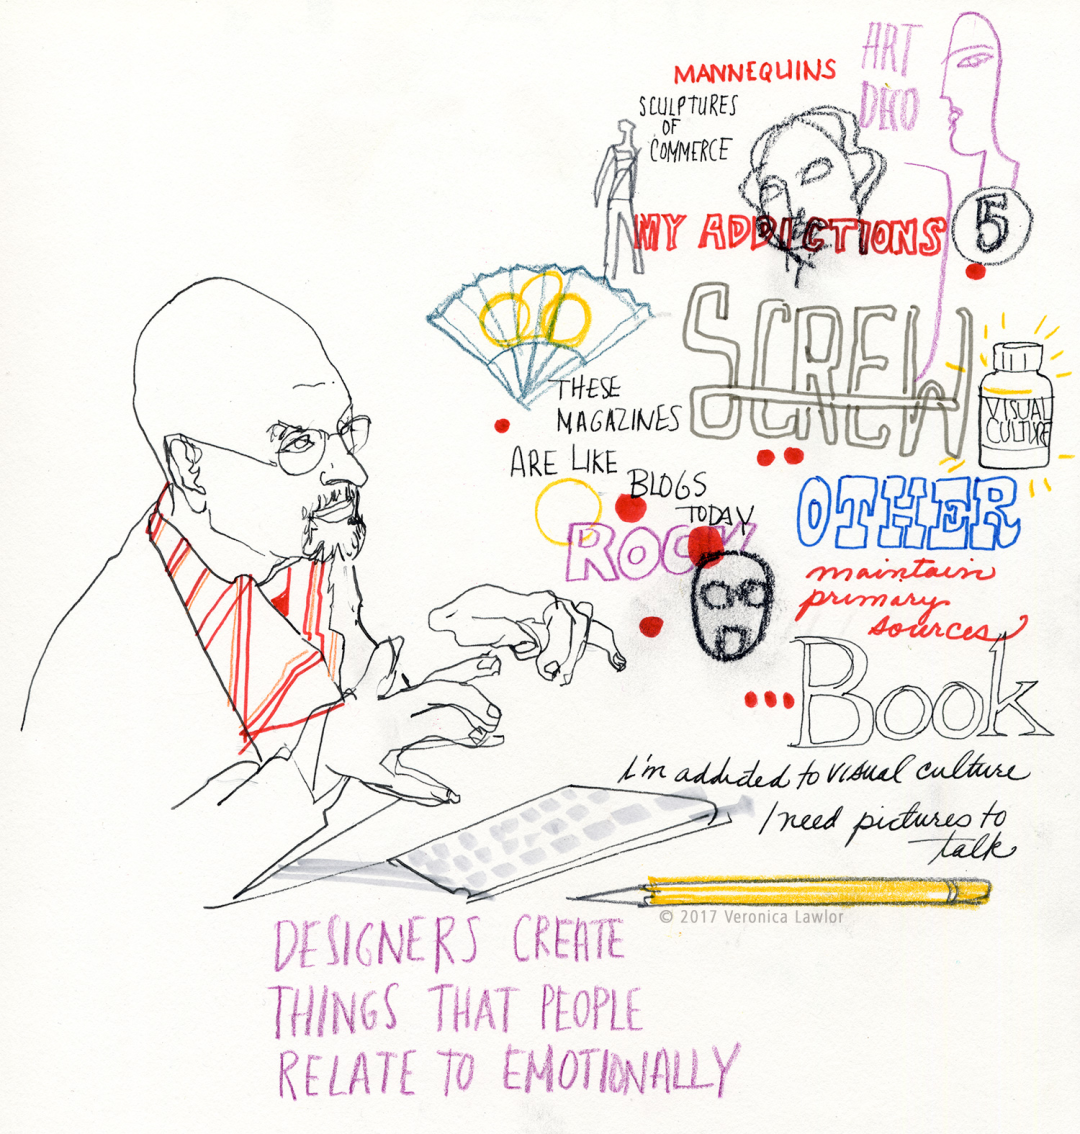 ART
DECO
MANNEQUINS
SCULPTURES
OF
COMMERCE
MY ADDICTIONS
5
SCREW
VISUAL
CULTURE
THESE
MAGAZINES
ARE LIKE
BLOGS
TODAY
ROCK
OTHER
maintain
primary
sources
Book
I'm addicted to visual culture
I need pictures to
talk
© 2017 Veronica Lawlor
DESIGNERS CREATE
THINGS THAT PEOPLE
RELATE TO EMOTIONALLY